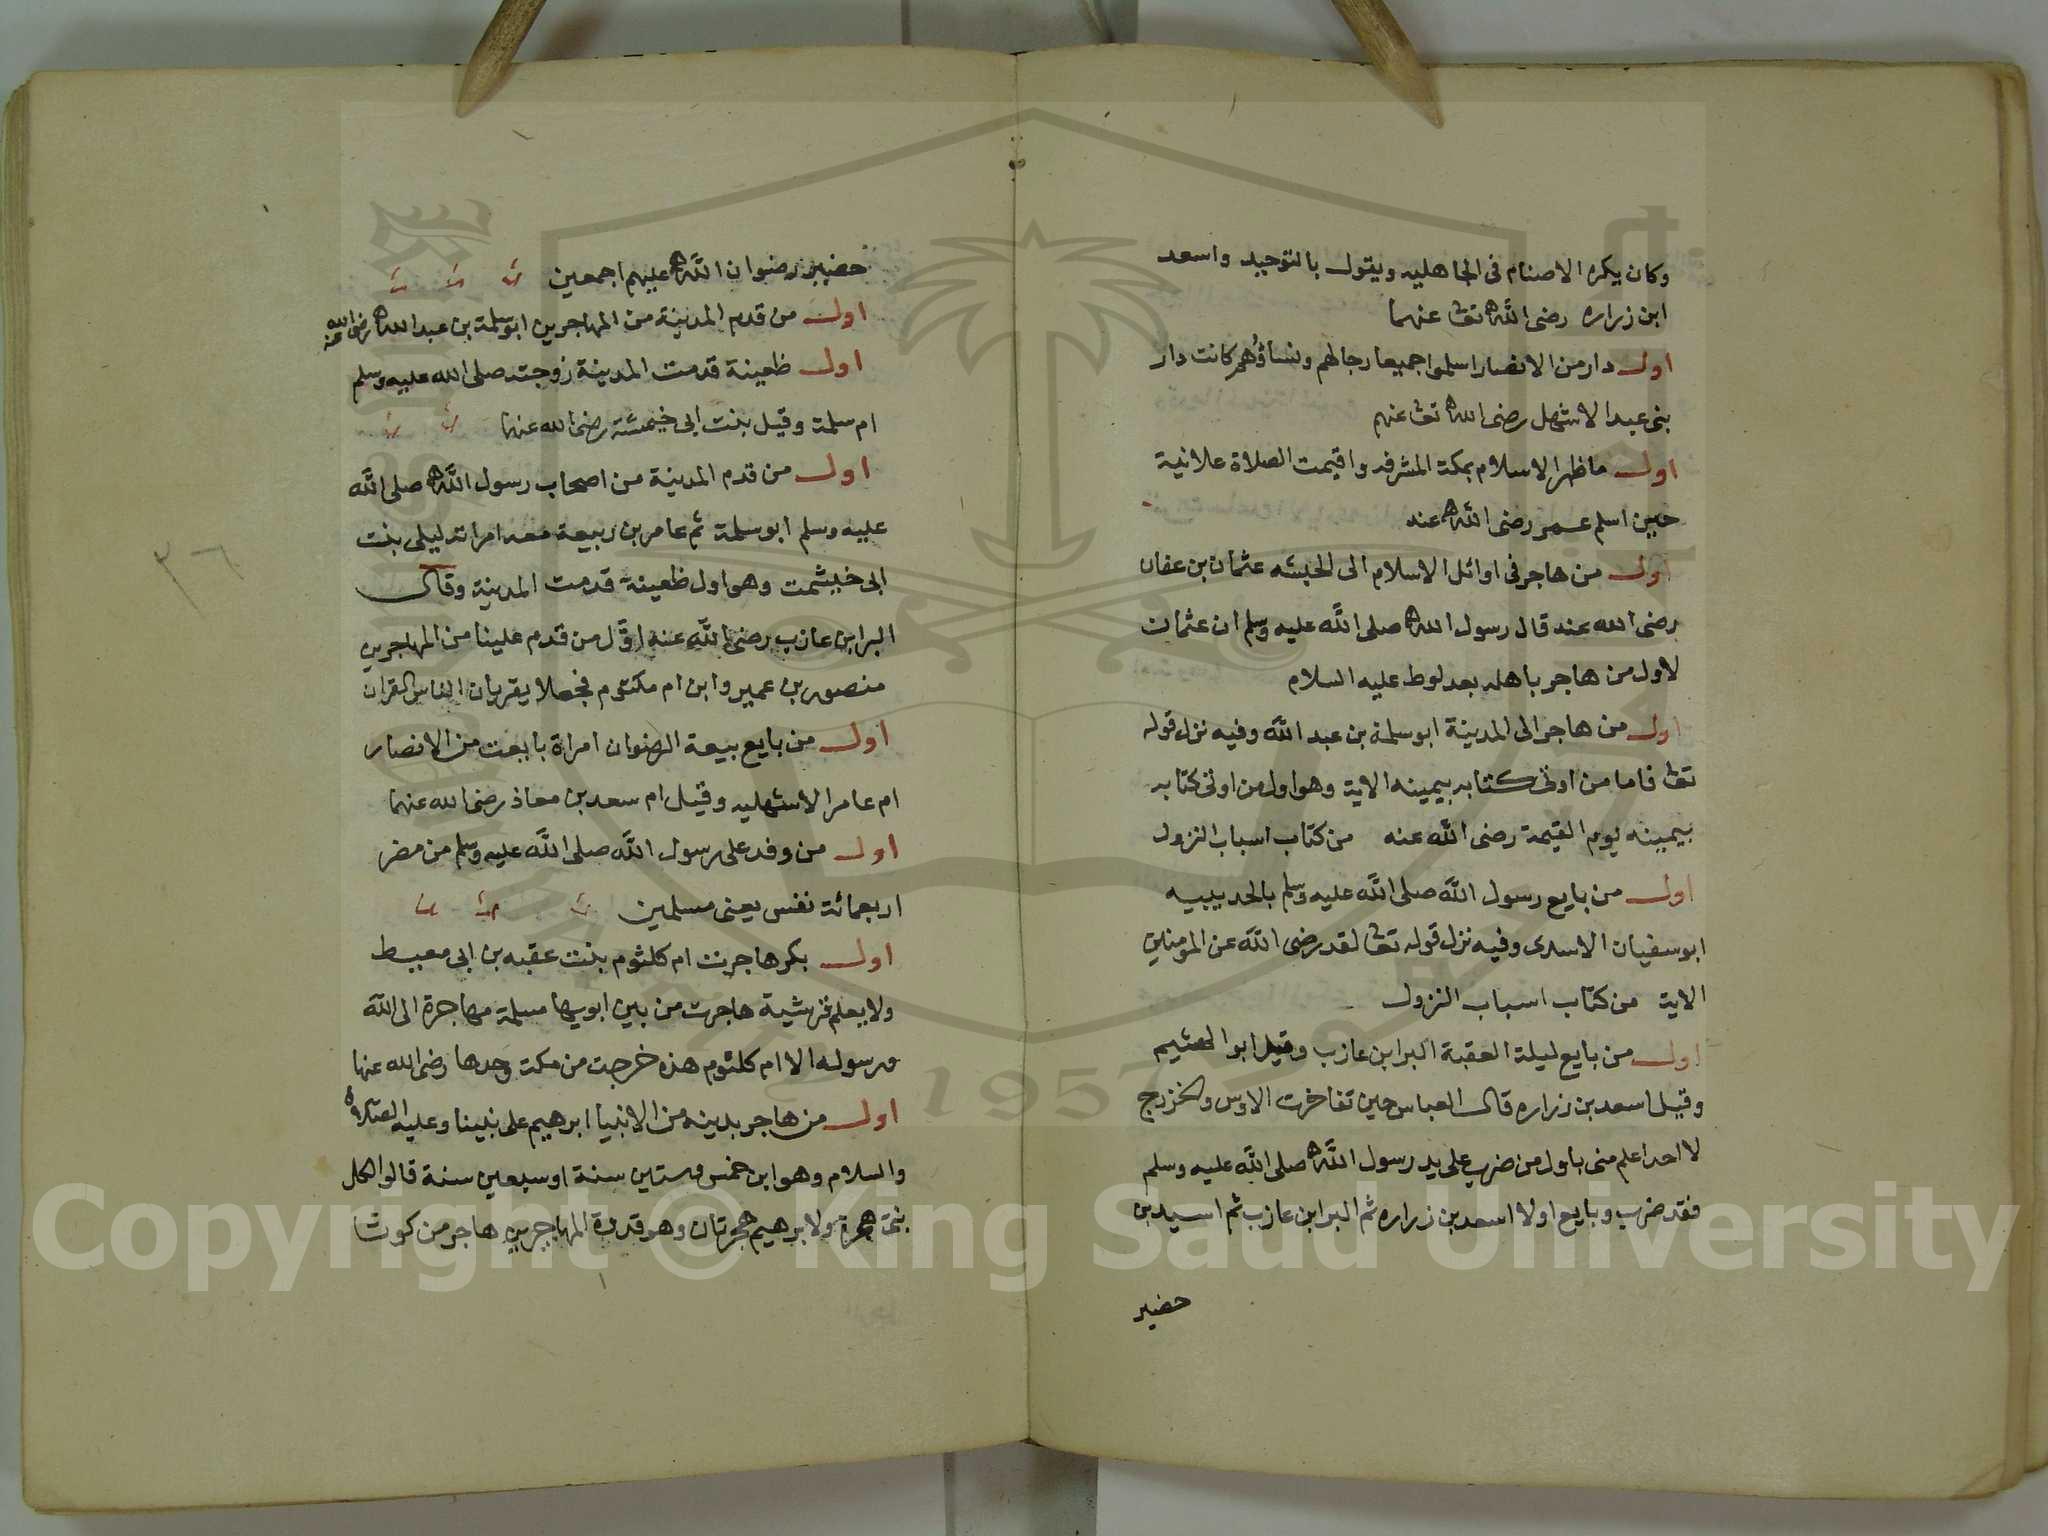 وكان يكره الاصنام فى الجاهليه ويقول بالتوحيد واسعد
ابن زراره رضى الله تعا عنهما
اول دار من الانصار اسلموا جميعا رجالهم ونساؤهم كانت دار
بنى عبد الاشهل رضى الله تعا عنهم
اول ما ظهر الاسلام بمكة المشرفه واقيمت الصلاة علانية
حين اسلم عمر رضى الله عنه
اول من هاجر فى اوائل الاسلام الى الحبشه عثمان بن عفان
رضى الله عنه قال رسول الله صلى الله عليه وسلم ان عثمان
لاول من هاجر باهله بعد لوط عليه السلام
اول من هاجر الى المدينة ابو سلمة بن عبد الله وفيه نزل قوله
تعا فاما من اوتى كتابه بيمينه الاية وهو اول من اوتى كتابه
بيمينه يوم القيمة رضى الله عنه من كتاب اسباب النزول
اول من بايع رسول الله صلى الله عليه وسلم بالحديبيه
ابو سفيان الاسدى وفيه نزل قوله تعا لقد رضى الله عن المومنين
الاية من كتاب اسباب النزول
اول من بايع ليلة العقبة البرا بن عازب وقيل ابو الهشيم
وقيل اسعد بن زراره قال العباس حين تفاخرت الاوس والخزرج
لا احد اعلم منى باول من ضرب على يد رسول الله صلى الله عليه وسلم
فقد ضرب وبايع اولا اسعد بن زراره ثم البرا بن عازب ثم اسيد بن
حضير
حضير رضوان الله عليهم اجمعين
اول من قدم المدينة من المهاجرين ابو سلمة بن عبد الله رضى الله عنه
اول ظعينة قدمت المدينة زوجته صلى الله عليه وسلم
ام سلمة وقيل بنت ابى خيثمة رضى الله عنها
اول من قدم المدينة من اصحاب رسول الله صلى الله
عليه وسلم ابو سلمة ثم عامر بن ربيعة معه امراته ليلى بنت
ابى خيثمت وهو اول ظعينة قدمت المدينة وقال
البرا بن عازب رضى الله عنه اوّل من قدم علينا من المهاجرين
منصور بن عمير وابن ام مكتوم فجعلا يقريان الناس القران
اول من بايع بيعة الرضوان امراة بايعت من الانصار
ام عامر الاشهليه وقيل ام سعد بن معاذ رضى الله عنهما
اول من وفد على رسول الله صلى الله عليه وسلم من مضر
اربعمائة نفس يعنى مسلمين
اول بكر هاجرت ام كلثوم بنت عقبه بن ابى معيط
ولا يعلم قرشية هاجرت من بين ابويها مسلمة مهاجرة الى الله
ورسوله الا ام كلثوم هذه خرجت من مكة وحدها رضى الله عنها
اول من هاجر بدينه من الانبيا ابرهيم على نبينا وعليه الصلاة
والسلام وهو ابن خمس وستين سنة او سبعين سنة قالوا لكل
نبى هجرة ولابرهيم هجرتان وهو قدوة المهاجرين هاجر من كوثا
٣٦
1957
Copyright © King Saud University